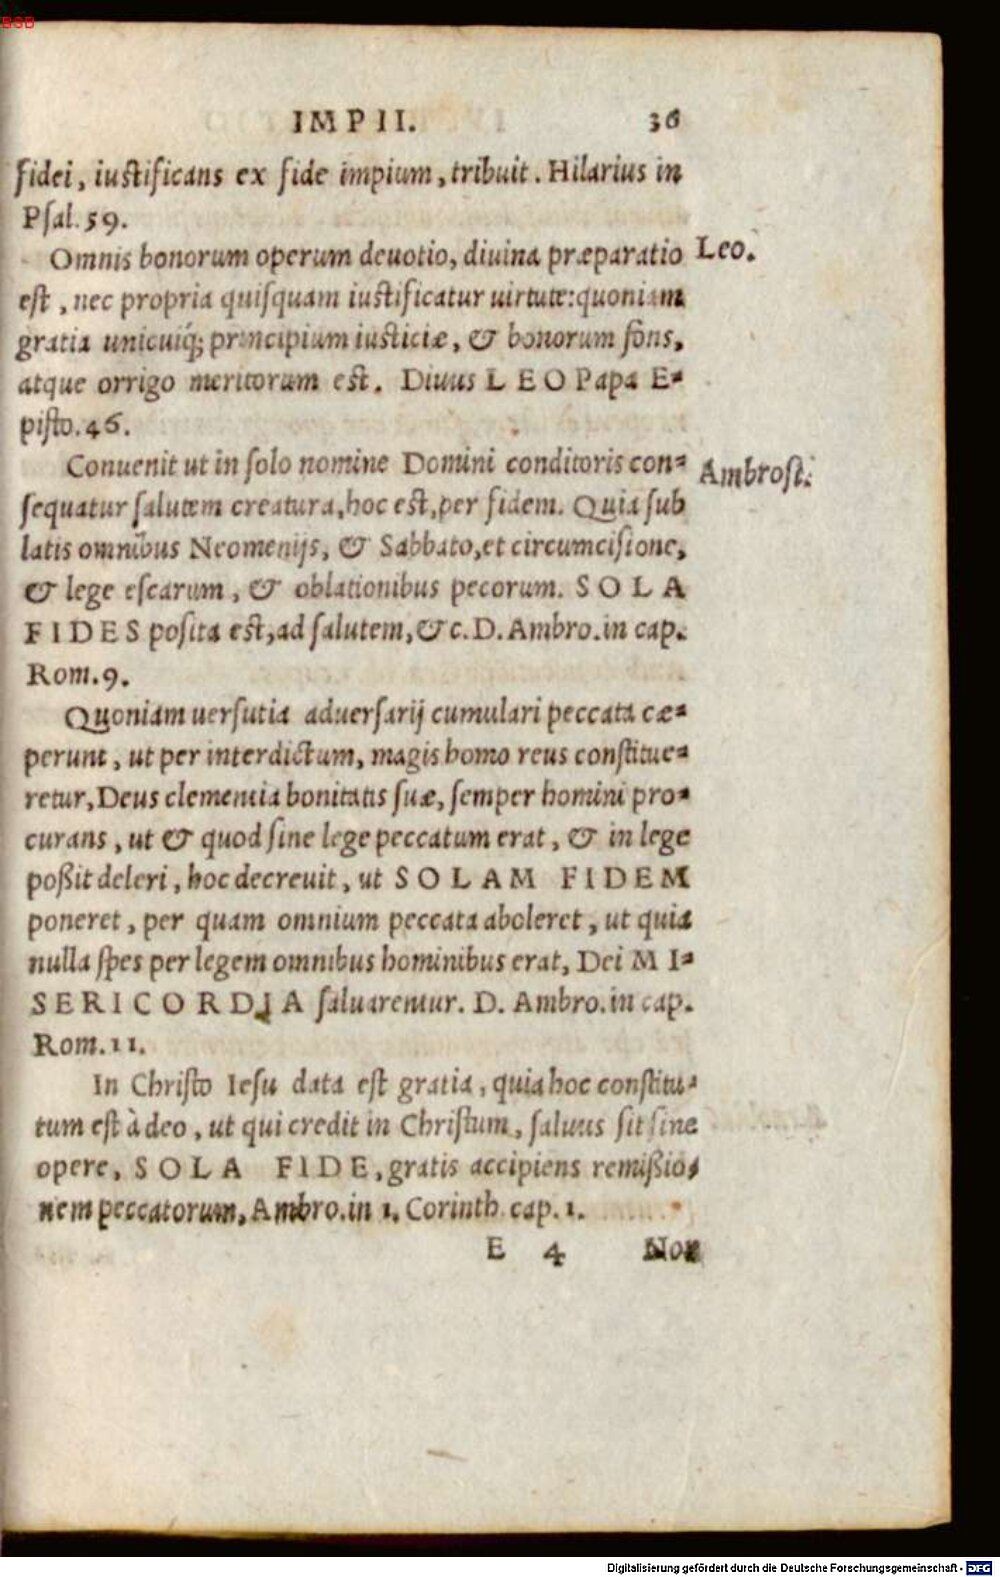 BSB
IMPII. 36
fidei, iustificans ex fide impium, tribuit. Hilarius in
Psal. 59.
Omnis bonorum operum deuotio, diuina præparatio
Leo.
est, nec propria quisquam iustificatur uirtute: quoniam
gratia unicuiq́; principium iusticiæ, & bonorum fons,
atque orrigo meritorum est. Diuus LEO Papa E-
pisto. 46.
Conuenit ut in solo nomine Domini conditoris con-
Ambrosi.
sequatur salutem creatura, hoc est, per fidem. Quia sub
latis omnibus Neomenijs, & Sabbato, et circumcisione,
& lege escarum, & oblationibus pecorum. SOLA
FIDES posita est, ad salutem, &c. D. Ambro. in cap.
Rom. 9.
Quoniam uersutia aduersarij cumulari peccata cæ-
perunt, ut per interdictum, magis homo reus constitue-
retur, Deus clementia bonitatis suæ, semper homini pro-
curans, ut & quod sine lege peccatum erat, & in lege
poßit deleri, hoc decreuit, ut SOLAM FIDEM
poneret, per quam omnium peccata aboleret, ut quia
nulla spes per legem omnibus hominibus erat, Dei MI-
SERICORDIA saluarentur. D. Ambro. in cap.
Rom. 11.
In Christo Iesu data est gratia, quia hoc constitu-
tum est à deo, ut qui credit in Christum, saluus sit sine
opere, SOLA FIDE, gratis accipiens remißio-
nem peccatorum, Ambro. in 1. Corinth. cap. 1.
E 4 Non
Digitalisierung gefördert durch die Deutsche Forschungsgemeinschaft - DFG